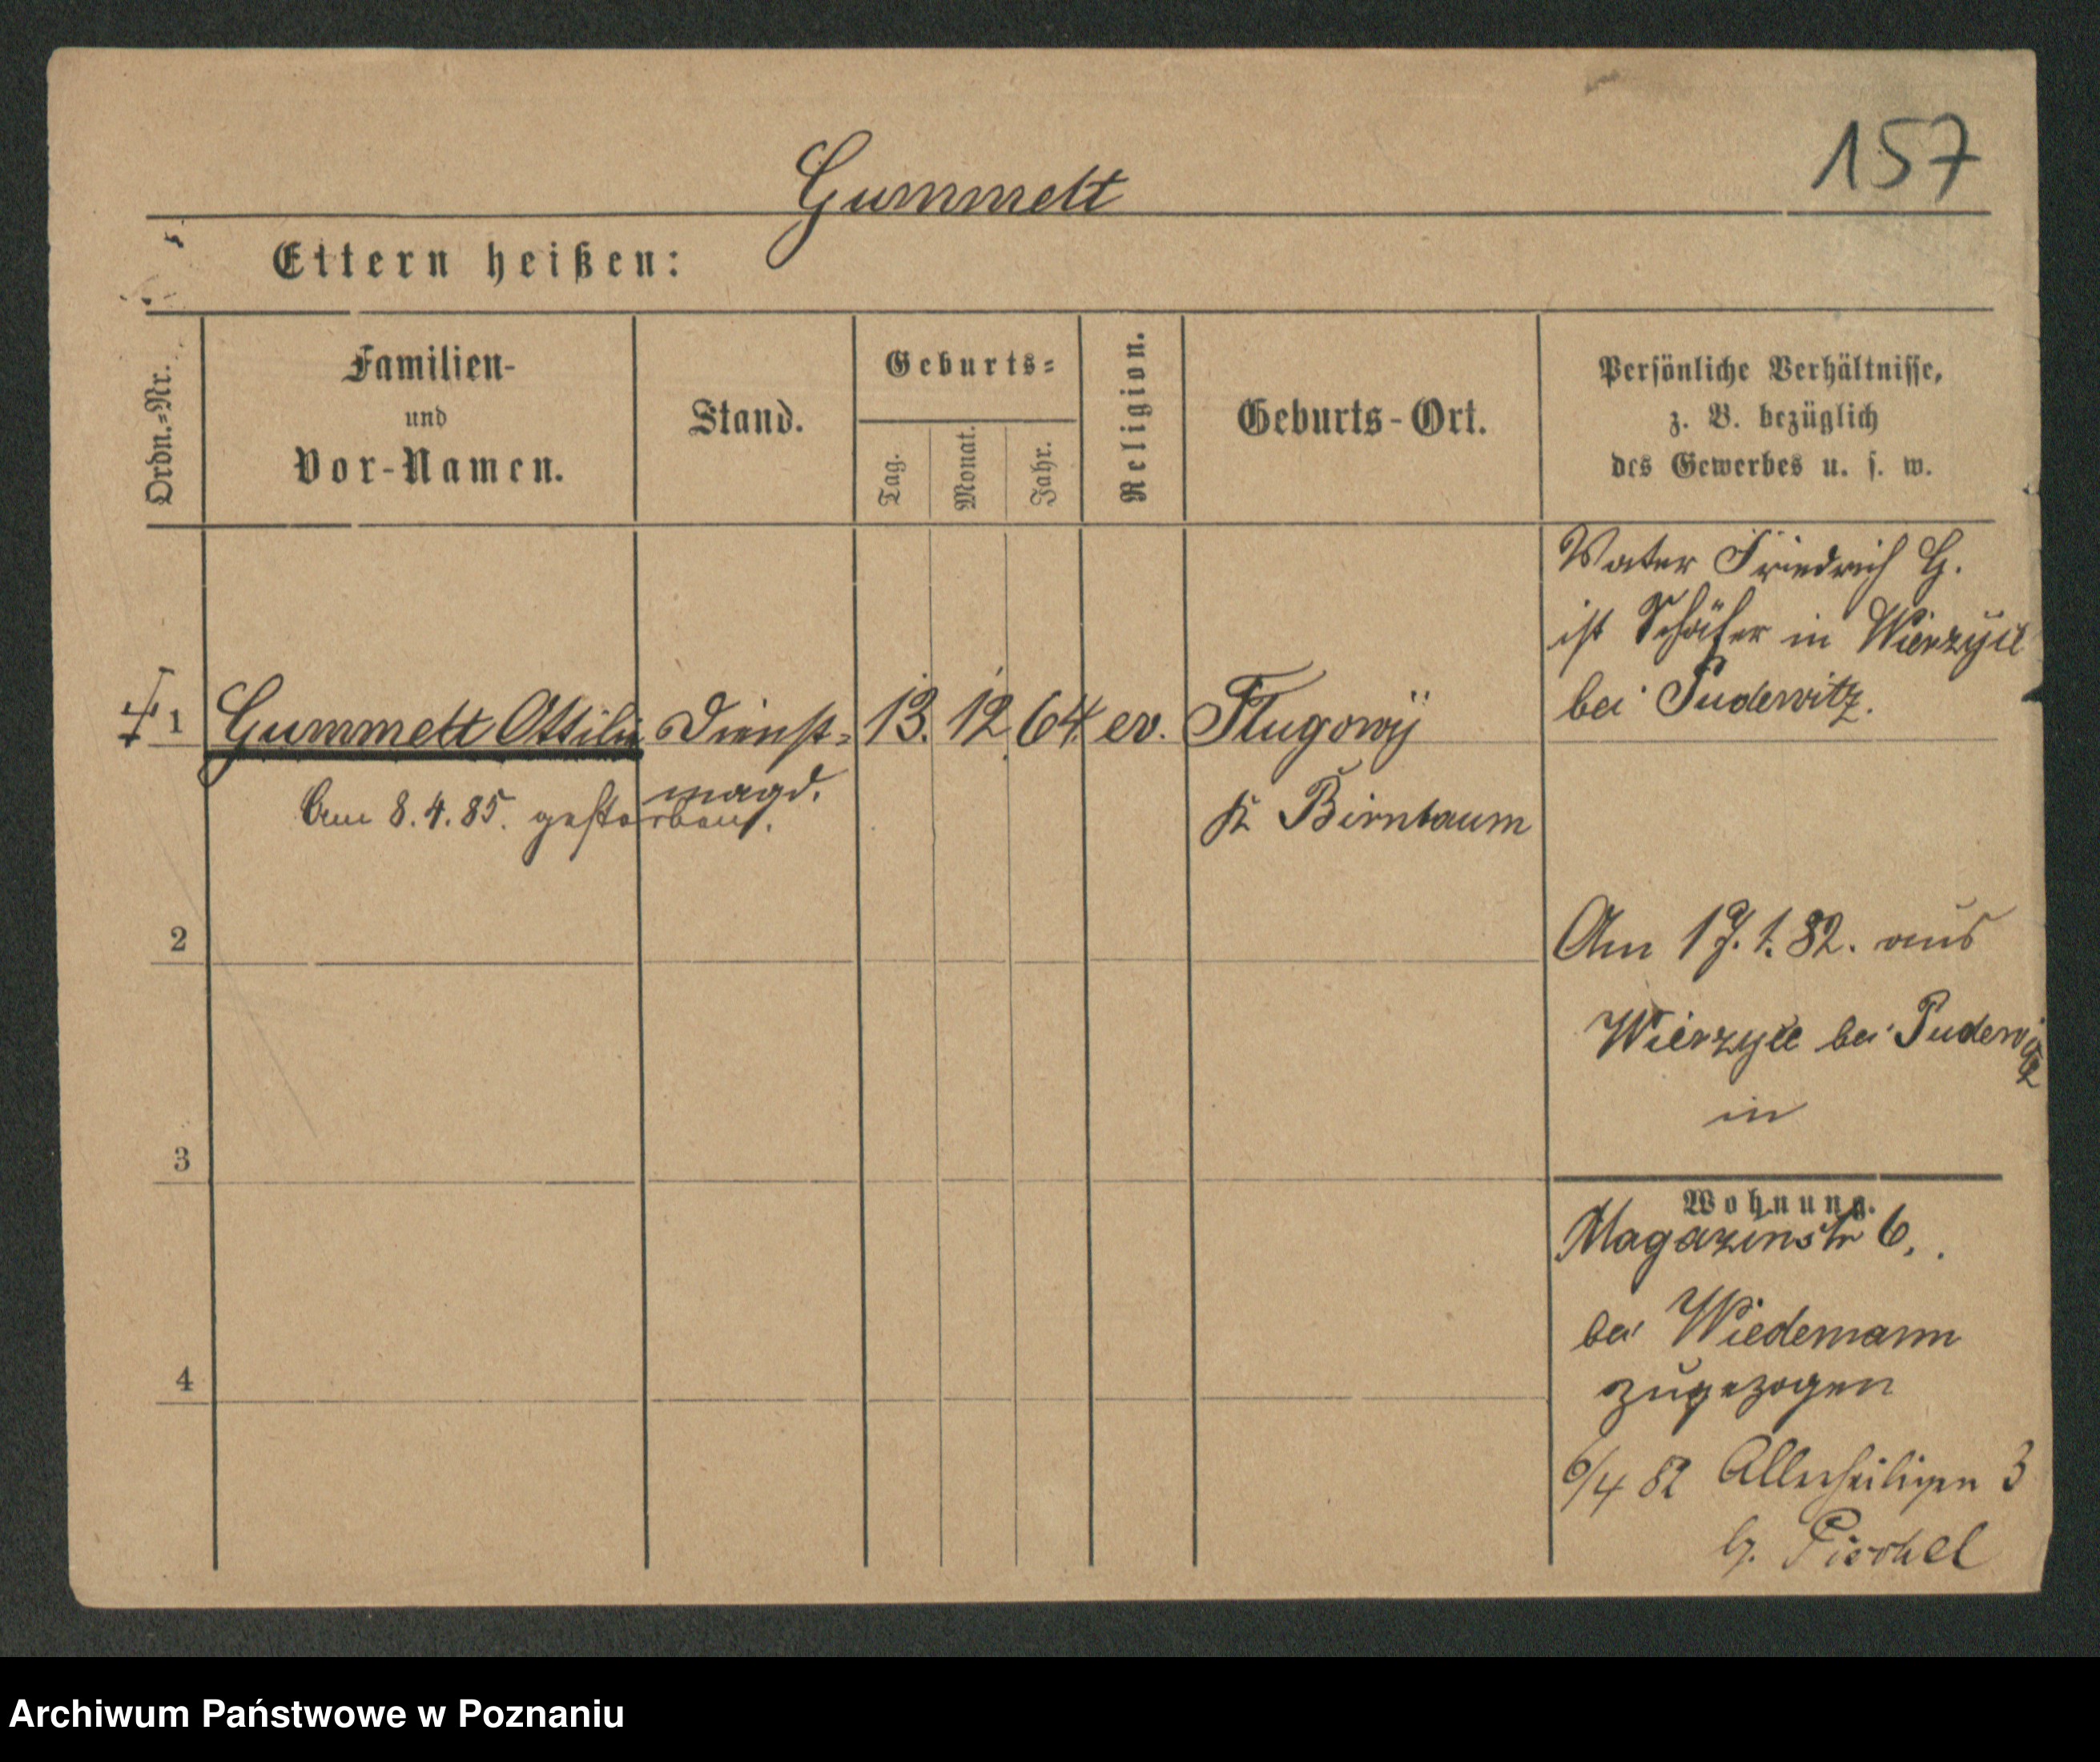 157
Gummelt
Eltern heißen:
Ordn.-Nr.
Familien-
und
Vor-Namen.
Stand.
Geburts-
Tag.
Monat.
Jahr.
Religion.
Geburts-Ort.
Persönliche Verhältnisse,
z. B. bezüglich
des Gewerbes u. s. w.
Vater Friedrich G.
ist Schäfer in
bei Pudewitz.
1 Gummelt Ottilie Dienst- 13. 12 64. ev.
magd.
Kr Birnbaum
Am 8.4.85. gestorben.
2
Am 17.1.82. aus
bei Pudewitz
in
3
Wohnung.
Magazinstr 6.
bei Wiedemann
zugezogen
4
6/4 82 Allerheiligen 3
b. Pischel
Archiwum Państwowe w Poznaniu